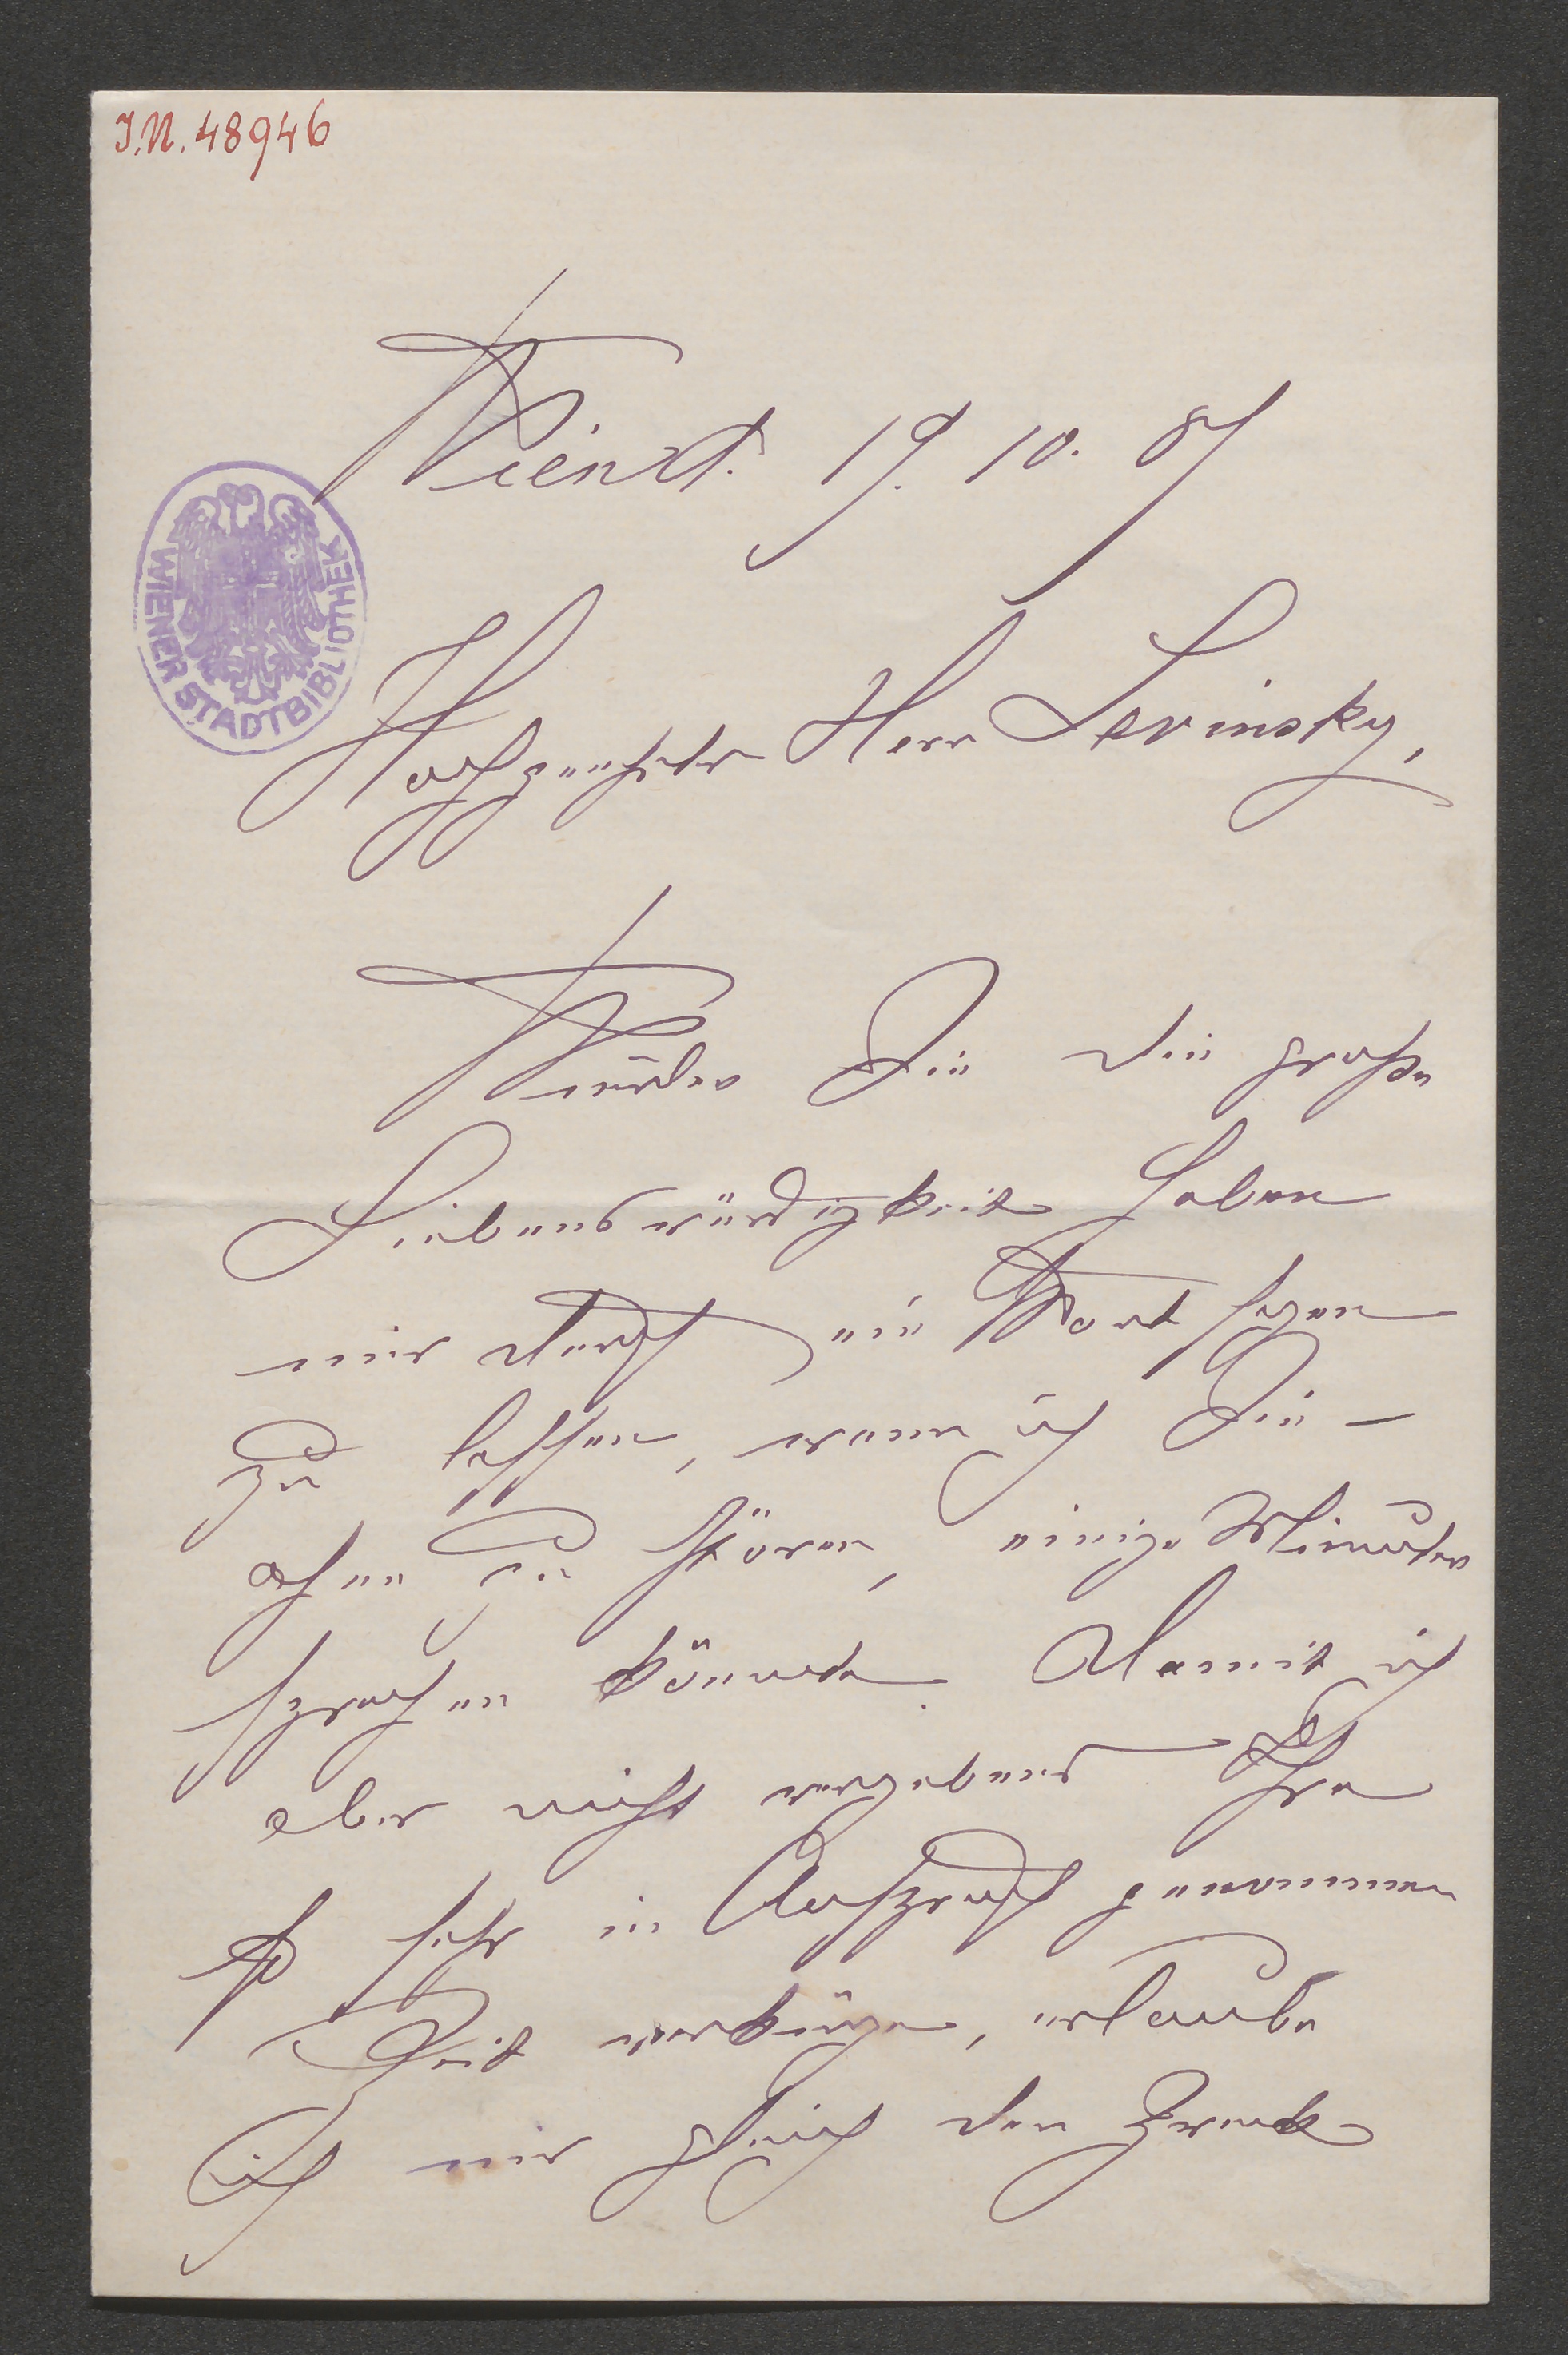 J.N. 48946
19. 10. 87
WIENER STADTBIBLIOTHEK
Hochgeehrter Herr Lewinsky,
Würden Sie die große
Liebenswürdigkeit haben
mir durch ein Wort sagen
zu lassen, wann ich Sie –
ohne zu stören, einige Minuten
sprechen könnte. Damit ich
aber nicht vergebens Ihre
so sehr in Anspruch genommen
Zeit verkürze, erlaube
ich mir gleich den Zweck